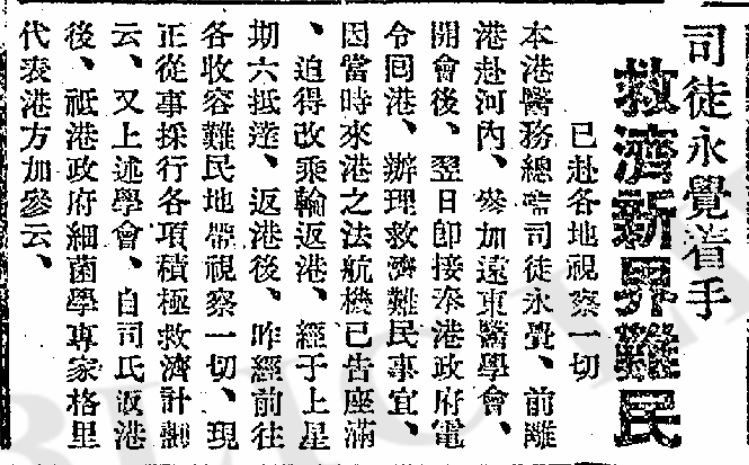 司徒永覺着手
救濟新界難民
已赴各地視察一切
本港醫務總監司徒永覺、前離
港赴河內、參加遠東醫學會、
開會後、翌日即接奉港政府電
令回港、辦理救濟難民事宜、
因當時來港之法航機已告座滿
、迫得改乘輪返港、經于上星
期六抵達、返港後、昨經前往
各收容難民地帶視察一切、現
正從事採行各項積極救濟計劃
云、又上述學會、自司氏返港
後、祗港政府細菌學專家格里
代表港方加參云、